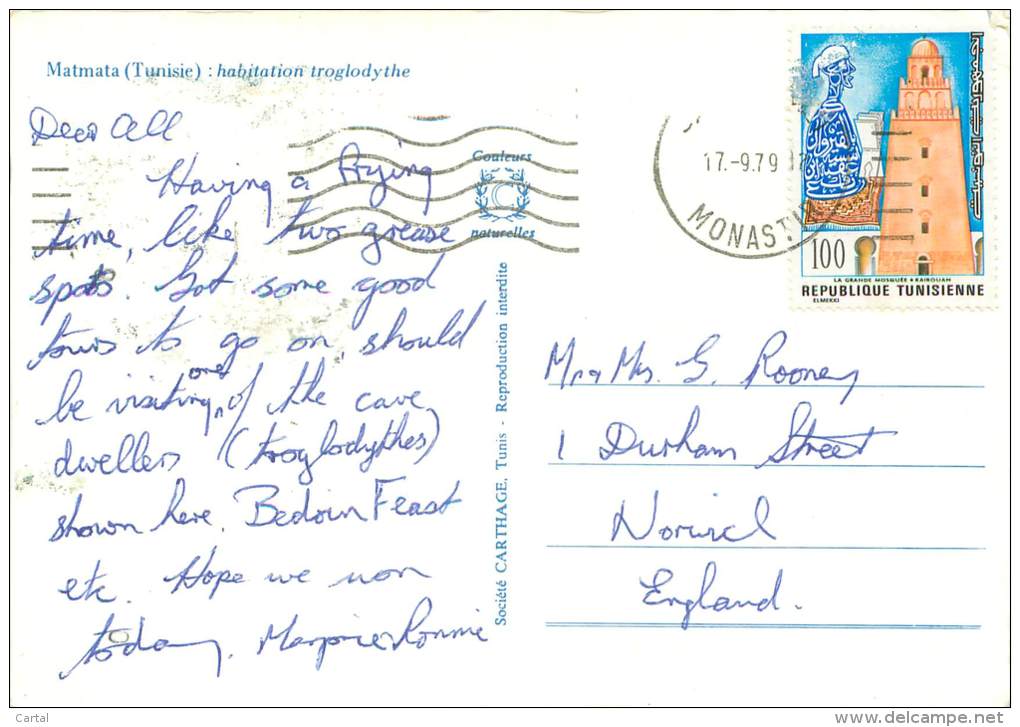 Matmata (Tunisie) : habitation troglodythe
Dear All
Having a frying
time, like two grease
spots. Got some good
tours to go on, should
be visiting one of the cave
dwellers (troglodythes)
shown here. Bedoin Feast
etc. Hope we won
today. Marjorie & Ronnie
Couleurs
naturelles
Société CARTHAGE, Tunis - Reproduction interdite
17.-9.79
MONASTI
100
LA GRANDE MOSQUÉE • KAIROUAN
REPUBLIQUE TUNISIENNE
ELMEKKI
Mr & Mrs. G. Rooney
1 Durham Street
Norwich
England.
Cartal
delcampe.net